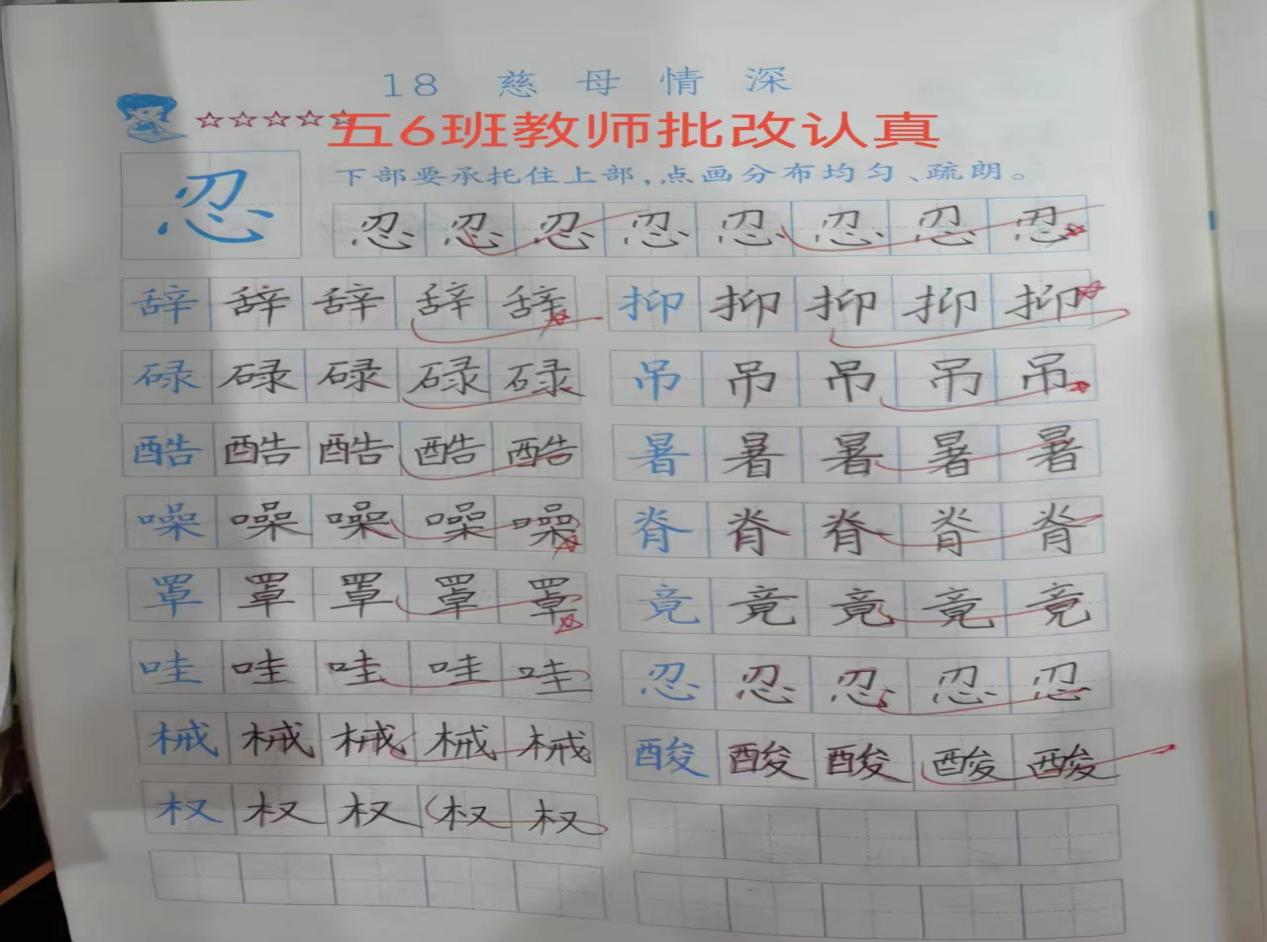 18 慈母情深
☆☆☆☆☆
五6班教师批改认真
下部要承托住上部，点画分布均匀、疏朗。
忍
忍 忍 忍 忍 忍 忍 忍 忍
辞 辞 辞 辞 辞 抑 抑 抑 抑 抑
碌 碌 碌 碌 碌 吊 吊 吊 吊 吊
酷 酷 酷 酷 酷 暑 暑 暑 暑 暑
噪 噪 噪 噪 噪 脊 脊 脊 脊 脊
罩 罩 罩 罩 罩 竟 竟 竟 竟 竟
哇 哇 哇 哇 哇 忍 忍 忍 忍 忍
械 械 械 械 械 酸 酸 酸 酸 酸
权 权 权 权 权